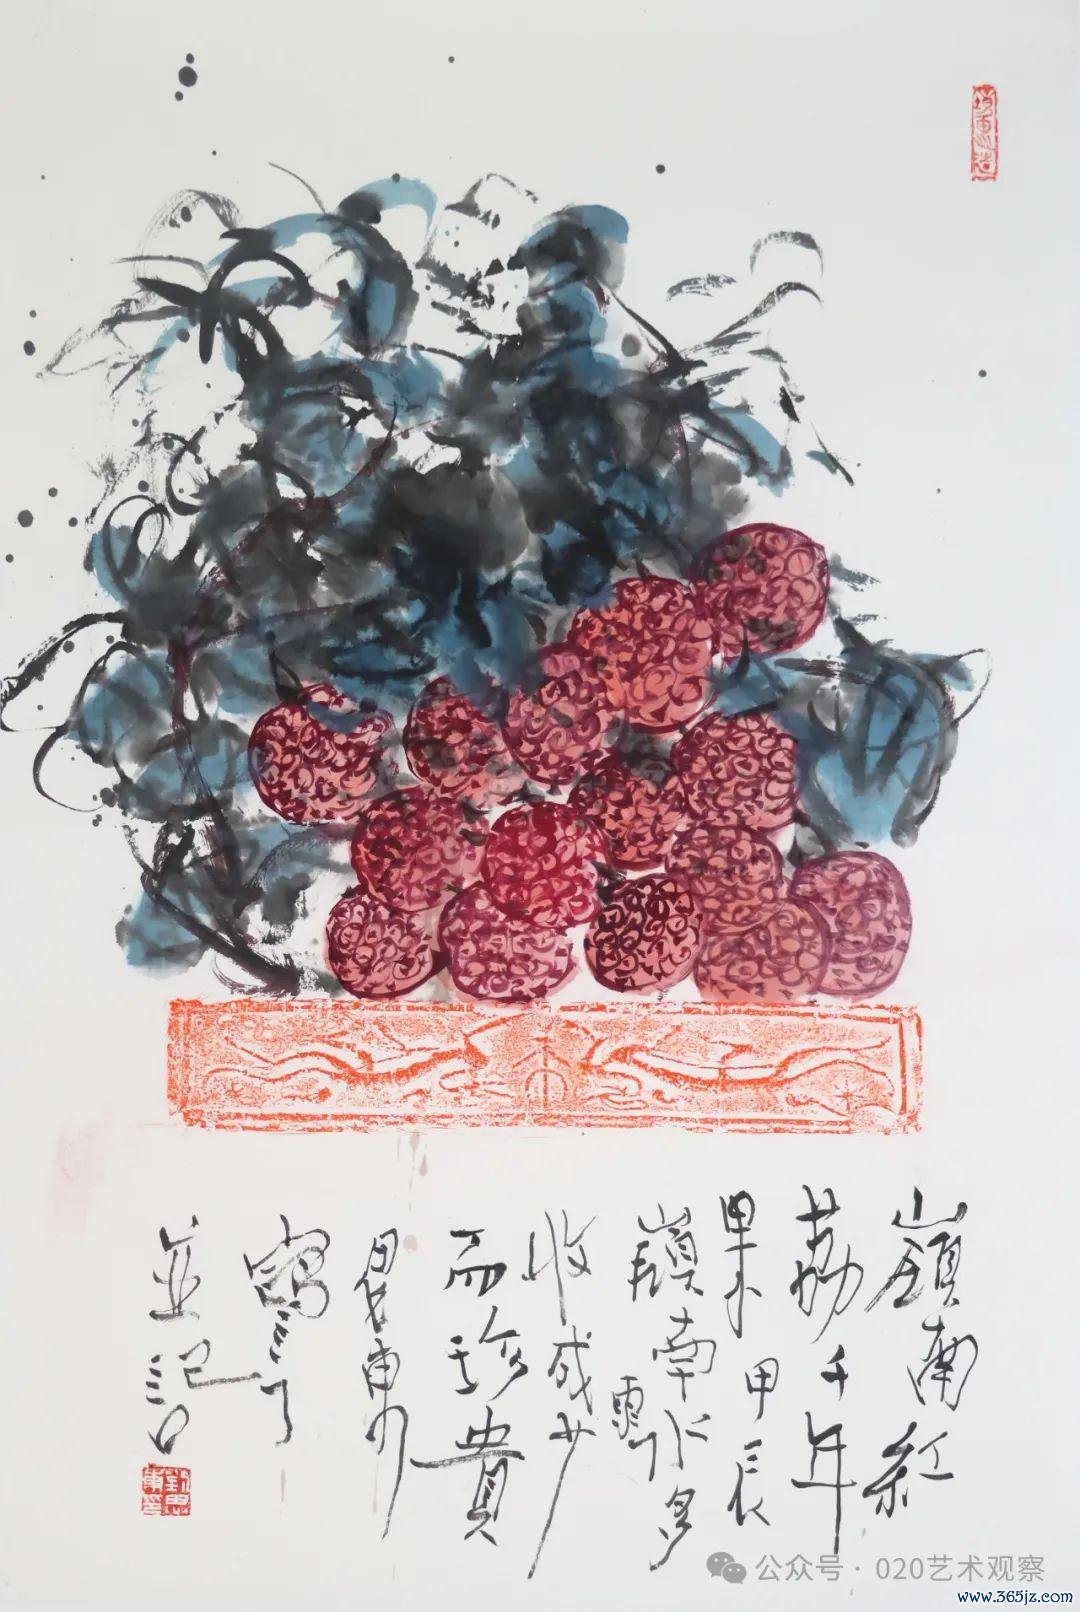 嶺南紅
荔千年
果甲辰
嶺南水多
收成少
而珍貴
思東
寫
並記
公众号 · 020艺术观察
www.365jz.com